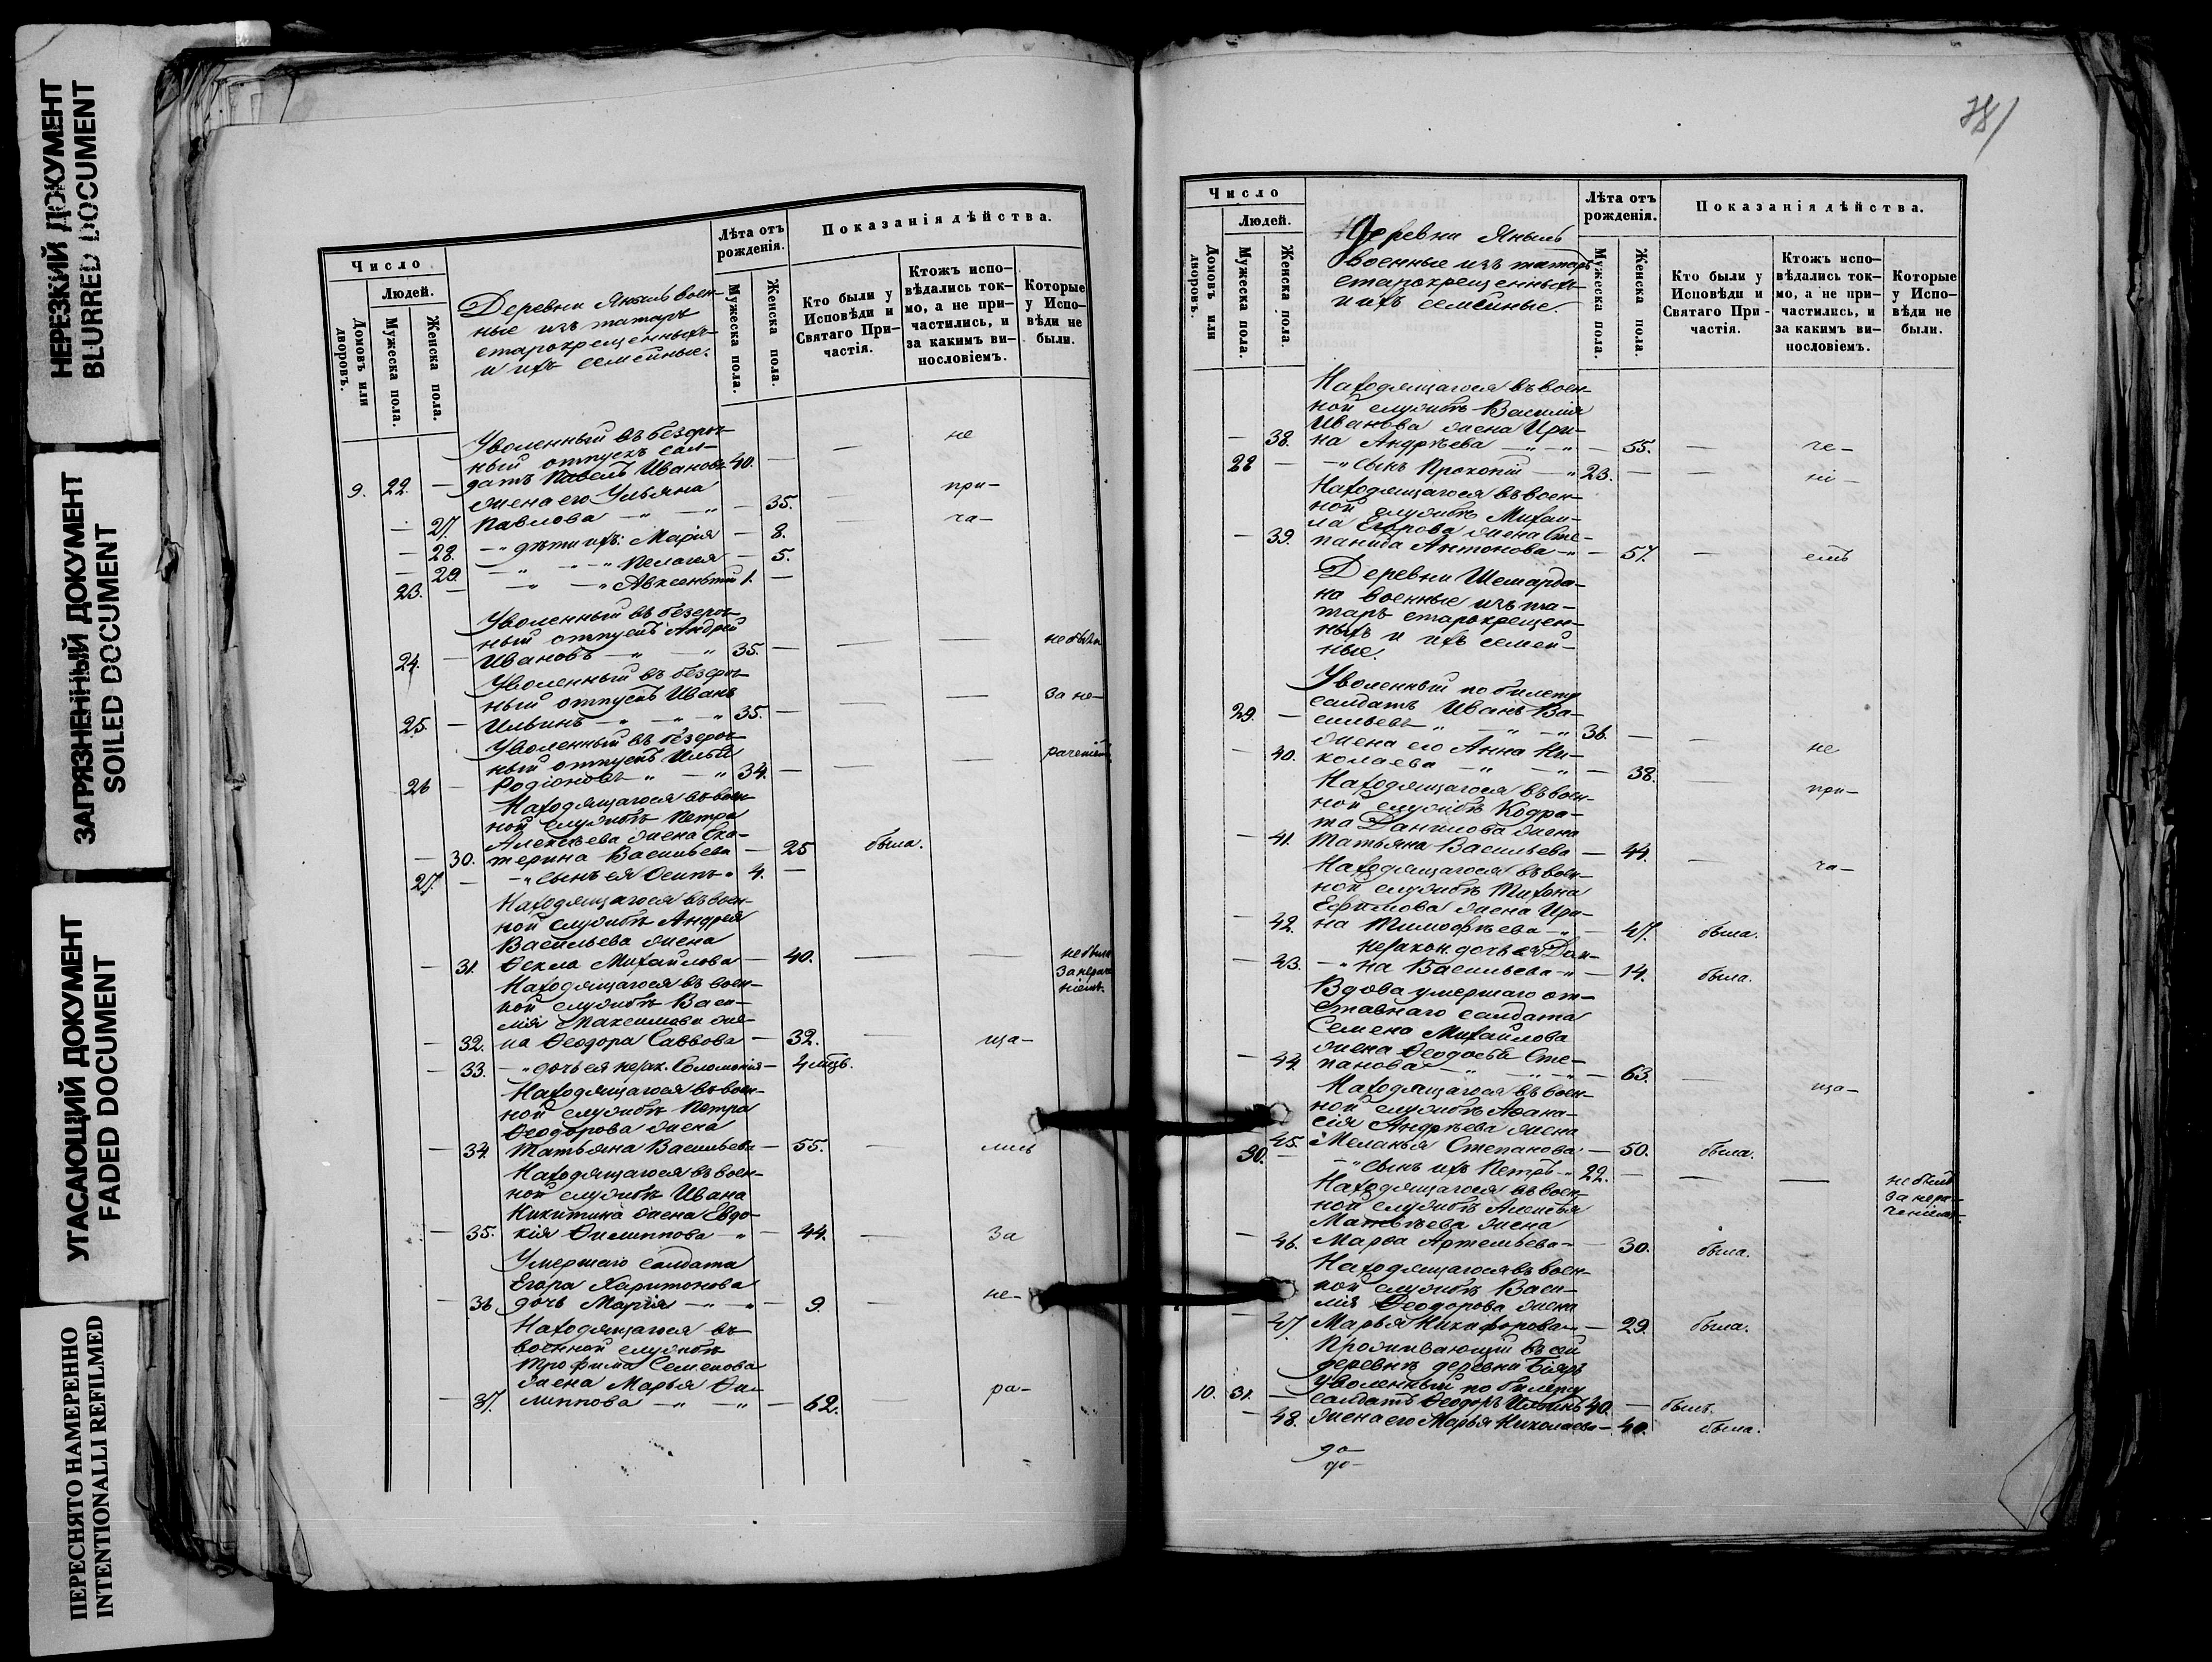 НЕРЕЗКИЙ ДОКУМЕНТ
BLURRED DOCUMENT
ЗАГРЯЗНЕННЫЙ ДОКУМЕНТ
SOILED DOCUMENT
УГАСАЮЩИЙ ДОКУМЕНТ
FADED DOCUMENT
ПЕРЕСНЯТО НАМЕРЕННО
INTENTIONALLI REFILMED
Число
Людей.
Домовъ или дворовъ.
Мужеска пола.
Женска пола.
Деревни Янылъ воен-
ные изъ татаръ
старокрещенныхъ
и ихъ семейные.
Лѣта отъ рожденія.
Мужеска пола.
Женска пола.
Показанія дѣйства.
Кто были у Исповѣди и Святаго При-частія.
Ктожъ испо-вѣдались ток-мо, а не при-частились, и за какимъ ви-нословіемъ.
Которые у Испо-вѣди не были.
Уволенный въ безсроч-
ный отпускъ сол-
9. 22. — датъ Павелъ Ивановъ 40. — — не
жена его Ульяна
— 27. Павлова — " — " — 35. — при-
— 28. — " дѣти ихъ: Марія — 8. — ча-
— 29. — " — " Пелагія — 5.
23. — — " — " Авксентій 1. —
Уволенный въ безсроч-
ный отпускъ Андрей
24. — Ивановъ — " — " 35. — — — не были
Уволенный въ безсроч-
ный отпускъ Иванъ
25. — Ильинъ — " — " 35. — — — за не-
Уволенный въ безсроч-
ный отпускъ Илья
26 — Родіоновъ — " — " 34. — — — раченіемъ
Находящагося въ воен-
ной службѣ Петра
Алексѣева жена Ека-
— 30. терина Васильева — 25 была.
27. — — " сынъ ея Осипъ " 4. —
Находящагося въ воен-
ной службѣ Андрея
Васильева жена
— 31. Ѳекла Михайлова — 40. — — не была
за нераче
ніемъ.
Находящагося въ воен-
ной службѣ Васи-
лія Максимова же-
— 32. на Ѳеодора Саввова — 32. — ща-
— 33. — " дочь ея незак. Соломонія — 4 мѣс.
Находящагося въ воен-
ной службѣ Петра
Ѳеодорова жена
— 34. Татьяна Васильева — 55. — лись
Находящагося въ воен-
ной службѣ Ивана
Никитина жена Евдо-
— 35. кія Филиппова — " — 44. — за
Умершаго солдата
Егора Харитонова
— 36 дочь Марія — " — " — 9. — не-
Находящагося въ
военной службѣ
Трофима Семенова
жена Марья Фи-
— 37. липпова — " — " — 62. — ра-
Число
Людей.
Домовъ или дворовъ.
Мужеска пола.
Женска пола.
Деревни Янылъ
военные изъ татаръ
старокрещенныхъ
и ихъ семейные.
Лѣта отъ рожденія.
Мужеска пола.
Женска пола.
Показанія дѣйства.
Кто были у Исповѣди и Святаго При-частія.
Ктожъ испо-вѣдались ток-мо, а не при-частились, и за какимъ ви-нословіемъ.
Которые у Испо-вѣди не были.
Находящагося въ воен-
ной службѣ Василія
Иванова жена Ири-
— 38. на Андрѣева — " — " — 55. — че-
28 — — " сынъ Прокопій — " 23. — — ні-
Находящагося въ воен-
ной службѣ Михаи-
ла Егорова жена Сте-
— 39. панида Антонова — " — 57. — емъ
Деревни Шемарда-
на военные изъ та-
таръ старокрещен-
ныхъ и ихъ семей-
ные.
Уволенный по билету
солдатъ Иванъ Ва-
29. — сильевъ " — " — " 36. — —
жена его Анна Ни-
— 40. колаева — " — " — 38. — не
Находящагося въ воен-
ной службѣ Кодра-
та Данилова жена
— 41. Татьяна Васильева — 44. — при-
Находящагося въ воен-
ной службѣ Тихона
Ефимова жена Ири-
— 42. на Тимофѣева — " — 47. была. ча-
незакон. дочь ея Дом-
— 43. — " на Васильева — " — 14. была.
Вдова умершаго от-
ставнаго солдата
Семена Михайлова
жена Ѳеодосья Сте-
— 44. панова — " — " — " — 63. — ща-
Находящагося въ воен-
ной службѣ Аѳана-
сія Андрѣева жена
45. Меланья Степанова — 50. была.
30. — — " сынъ ихъ Петръ — " 22. — — — не былъ
за нера-
ченіемъ.
Находящагося въ воен-
ной службѣ Аѳанасья
Матвѣева жена
— 46. Марѳа Артемьева — — 30. была.
Находящагося въ воен-
ной службѣ Васи-
лія Ѳеодорова жена
— 47. Марья Никифорова — 29. была.
Проживающій въ сей
деревнѣ деревни Бияръ
уволенный по билету
10. 31. — солдатъ Ѳеодоръ Ильинъ 40. — былъ.
— 48. жена его Марья Николаева — 40. была.